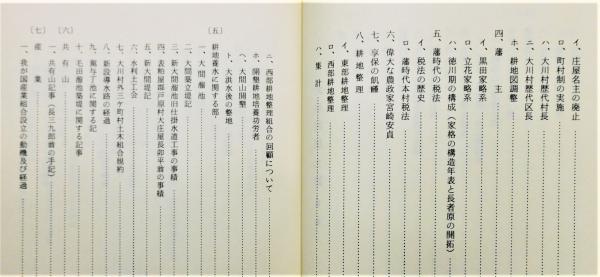 イ、庄屋名主の廃止
ロ、町村制の実施
ハ、大川村歴代村長
ニ、大川村歴代区長
ホ、耕地図調整
四、藩主
イ、黒田家略系
ロ、立花家略系
ハ、徳川期の構成(家格の構造年表と長者原の開拓)
五、藩時代の税法
イ、税法の歴史
ロ、藩時代本村税法
六、偉大な農政家宮崎安貞
七、享保の飢饉
八、耕地整理
イ、東部耕地整理
ハ、集計
ニ、西部耕地整理組合の回顧について
ホ、開墾耕地培養功労者
ヘ、大間山開墾
ト、大洪水後の整地
〔五〕
耕地養水に関する部
一、大間溜池
二、大間築立記
三、新大間溜池旧仕掛水道工事の事積
四、表粕屋郡戸原村大庄屋長卯平翁の事積
五、新大間堤記
六、水利土工会
七、大川村外三ケ町村土木組合規約
八、新設導水路の経過
九、駕与丁池に関する記
十、毛田溜池築堤に関する記事
〔六〕
共有山
一、共有山記事(長三九郎翁の手記)
〔七〕
産業
一、我が国産業組合設立の動機及び経過